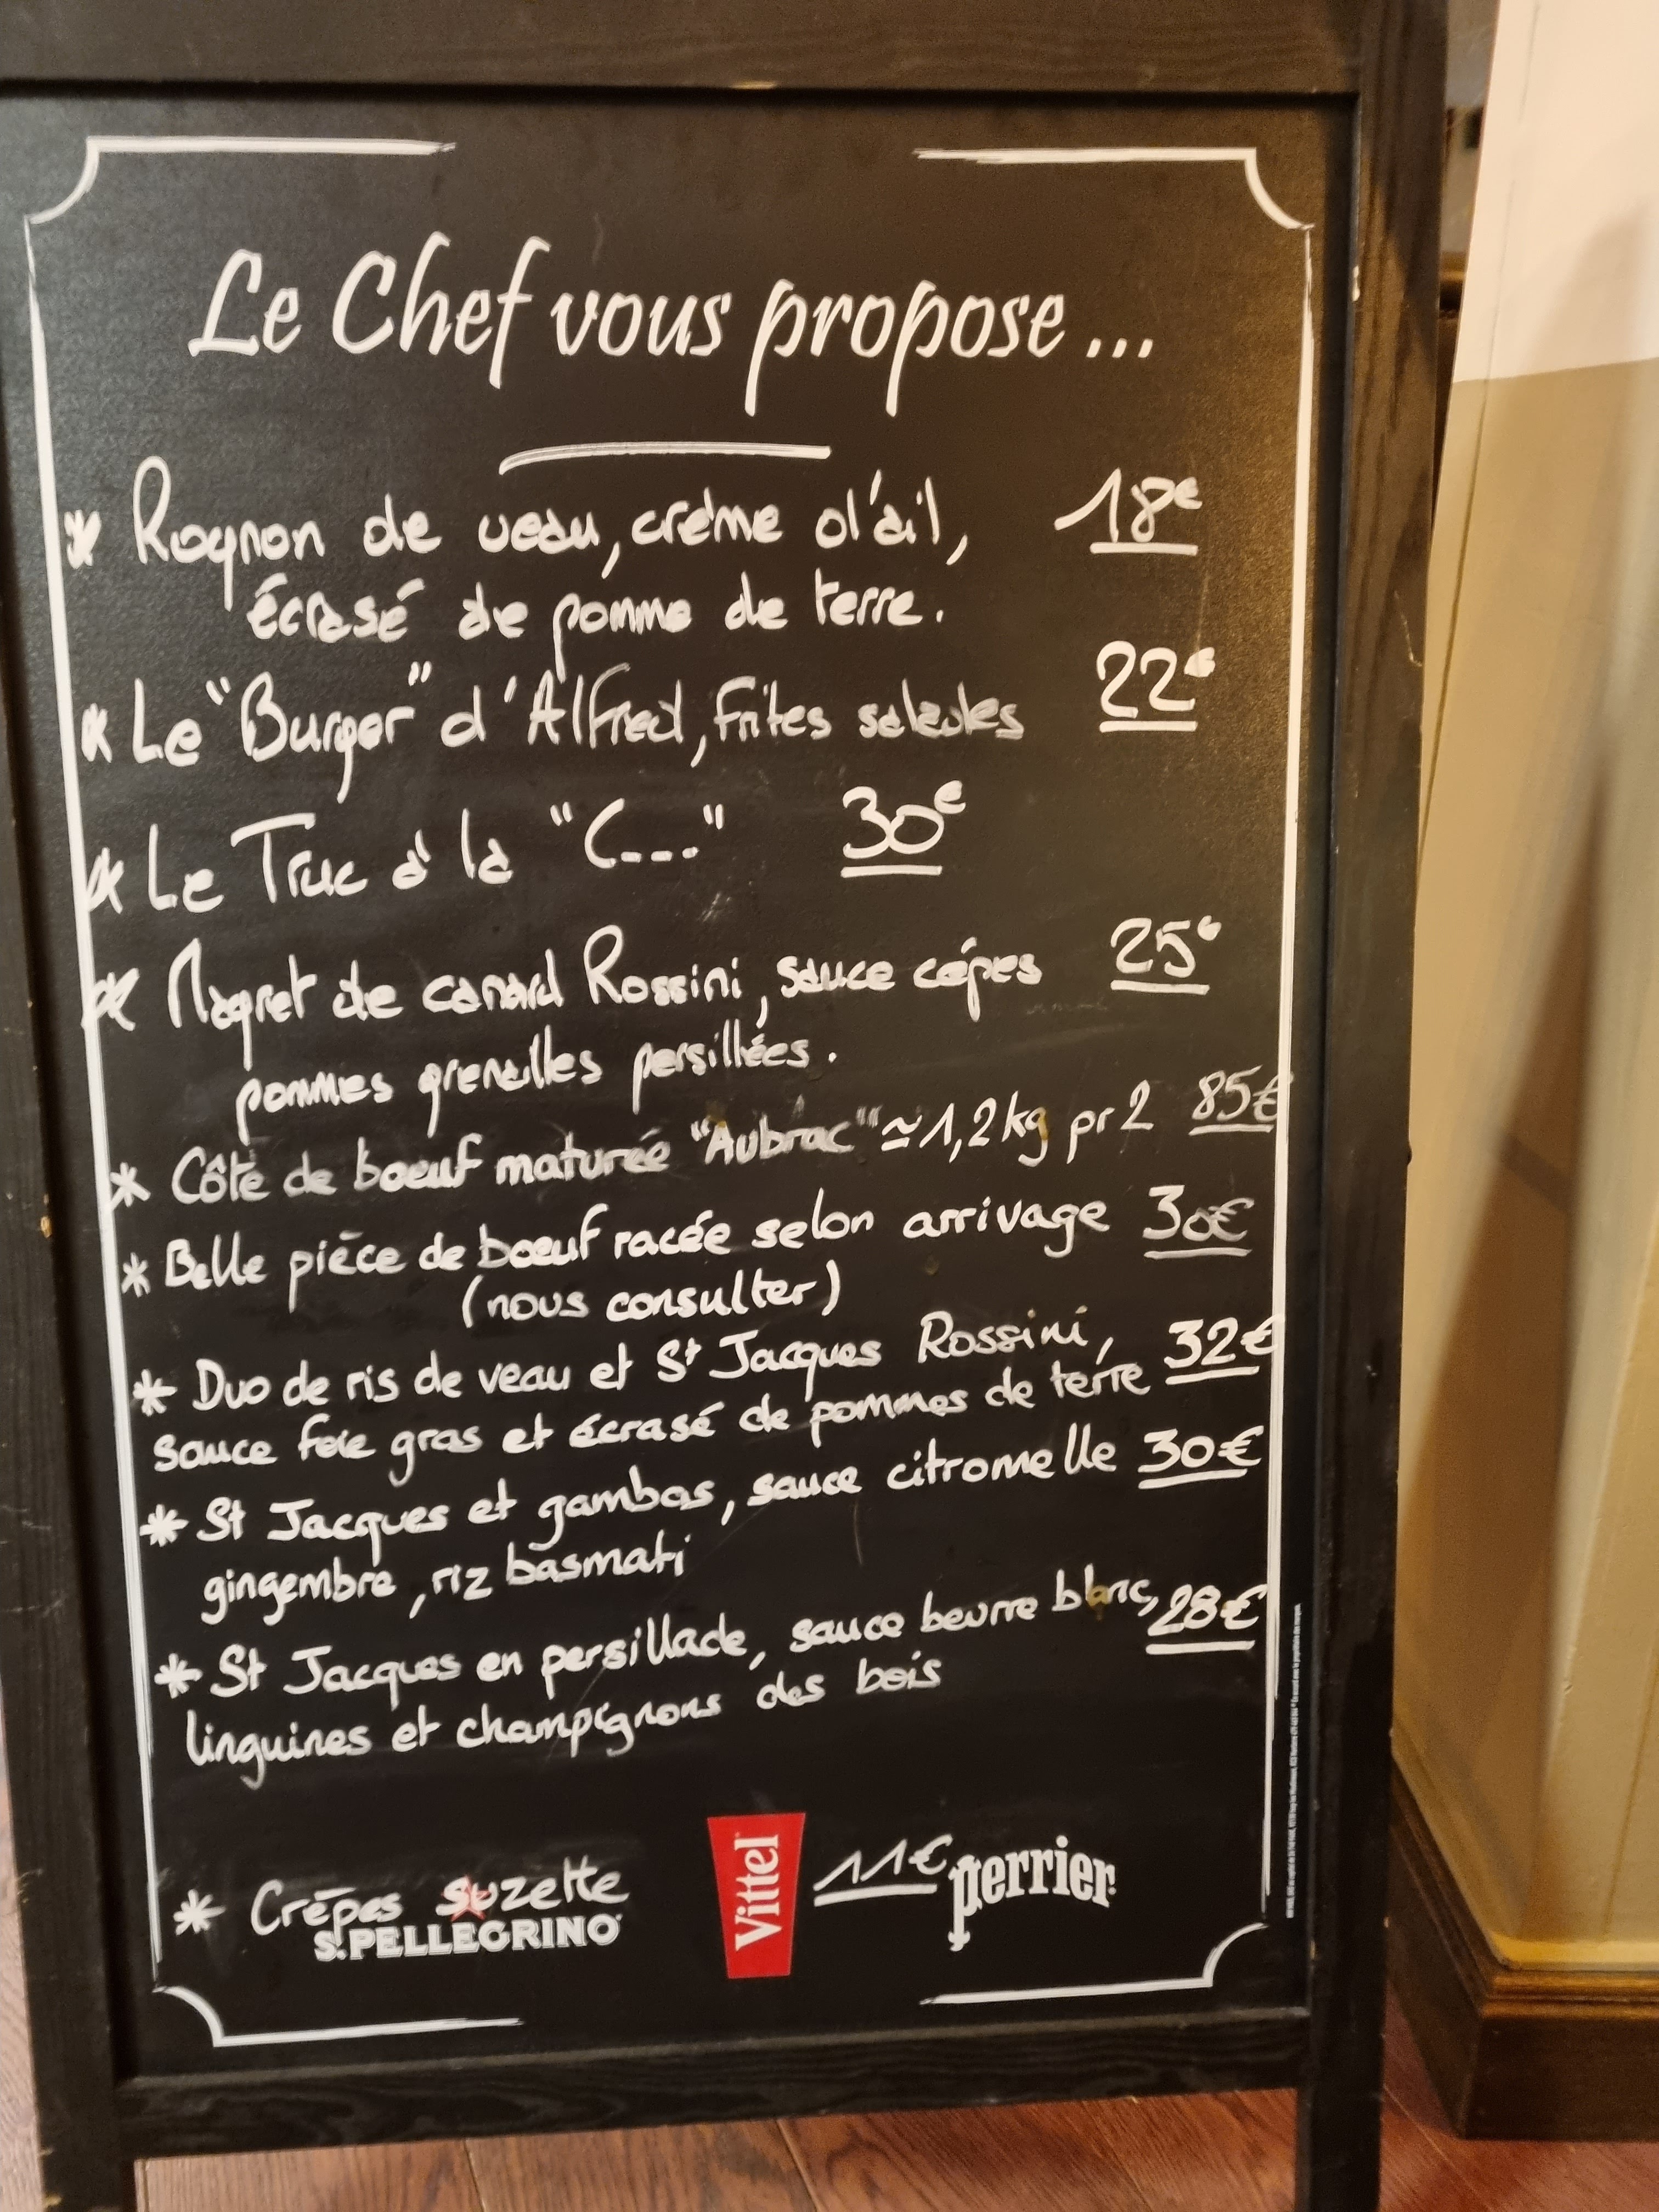 Le Chef vous propose ...
* Rognon de veau, crème d'ail, 18€
écrasé de pomme de terre.
* Le "Burger" d'Alfred, frites salades 22€
* Le Truc à la "C---" 30€
* Magret de canard Rossini, sauce cépes 25€
pommes grenailles persillées.
* Côte de boeuf maturée "Aubrac" ≃ 1,2 kg pr 2 85€
* Belle pièce de boeuf racée selon arrivage 30€
(nous consulter)
* Duo de ris de veau et St Jacques Rossini, 32€
sauce foie gras et écrasé de pommes de terre
* St Jacques et gambas, sauce citronnelle 30€
gingembre, riz basmati
* St Jacques en persillade, sauce beurre blanc, 28€
linguines et champignons des bois
* Crêpes suzette 11€
S.PELLEGRINO
Vittel
perrier